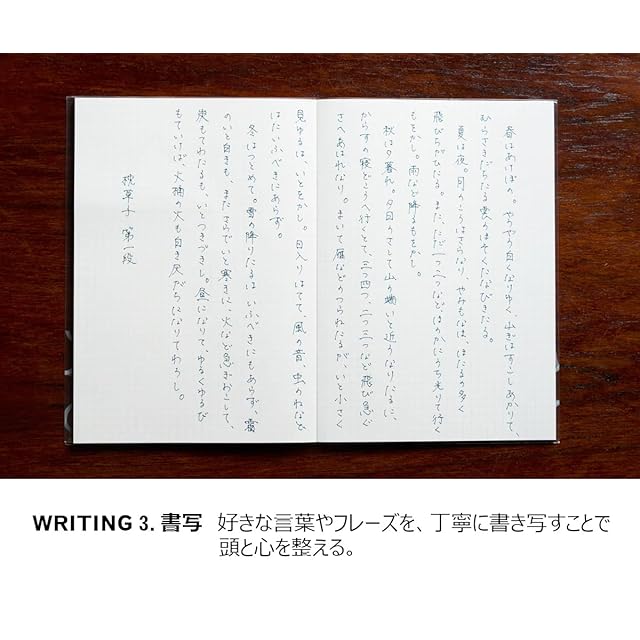 春はあけぼの。やうやう白くなりゆく山ぎは、すこしあかりて、
むらさきだちたる雲のほそくたなびきたる。
夏は夜。月のころはさらなり、やみもなほ、ほたるの多く
飛びちがひたる。また、ただ一つ二つなど、ほのかにうち光りて行く
もをかし。雨など降るもをかし。
秋は夕暮れ。夕日のさして山の端いと近うなりたるに、
からすの寝どころへ行くとて、三つ四つ、二つ三つなど飛び急ぐ
さへあはれなり。まいて雁などのつらねたるが、いと小さく
見ゆるは、いとをかし。日入りはてて、風の音、虫のねなど
はたいふべきにあらず。
冬はつとめて。雪の降りたるはいふべきにもあらず、霜
のいと白きも、またさらでいと寒きに、火など急ぎおこして、
炭もてわたるも、いとつきづきし。昼になりて、ゆるくゆるび
もていけば、火桶の火も白き灰がちになりてわろし。
枕草子 第一段
WRITING 3. 書写 好きな言葉やフレーズを、丁寧に書き写すことで
頭と心を整える。